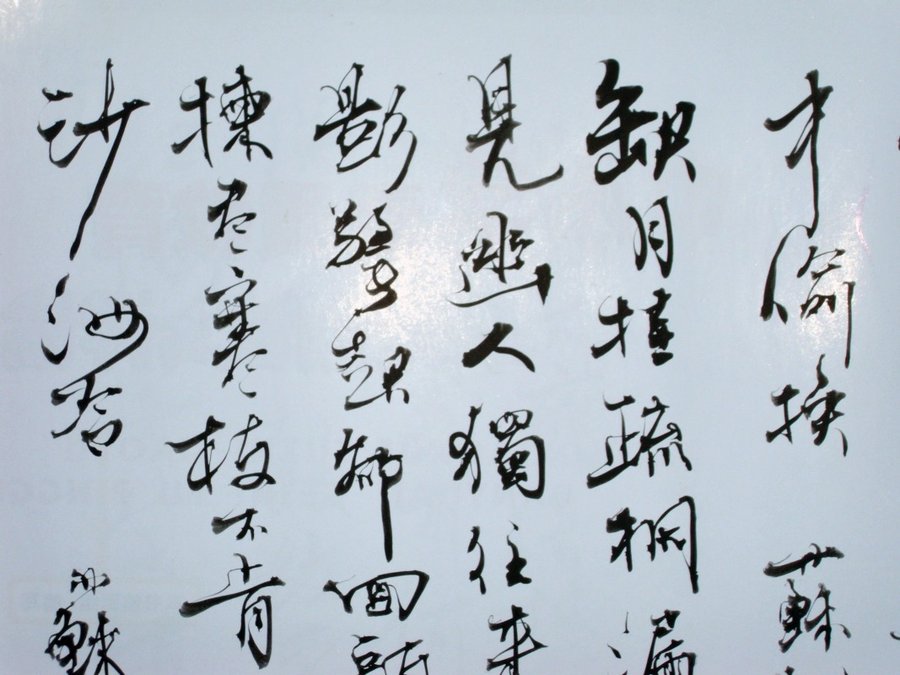 中偷換 蘇
缺月挂疏桐漏
見幽人獨往來
影驚起卻回
揀尽寒枝不肯
沙洲冷 蘇